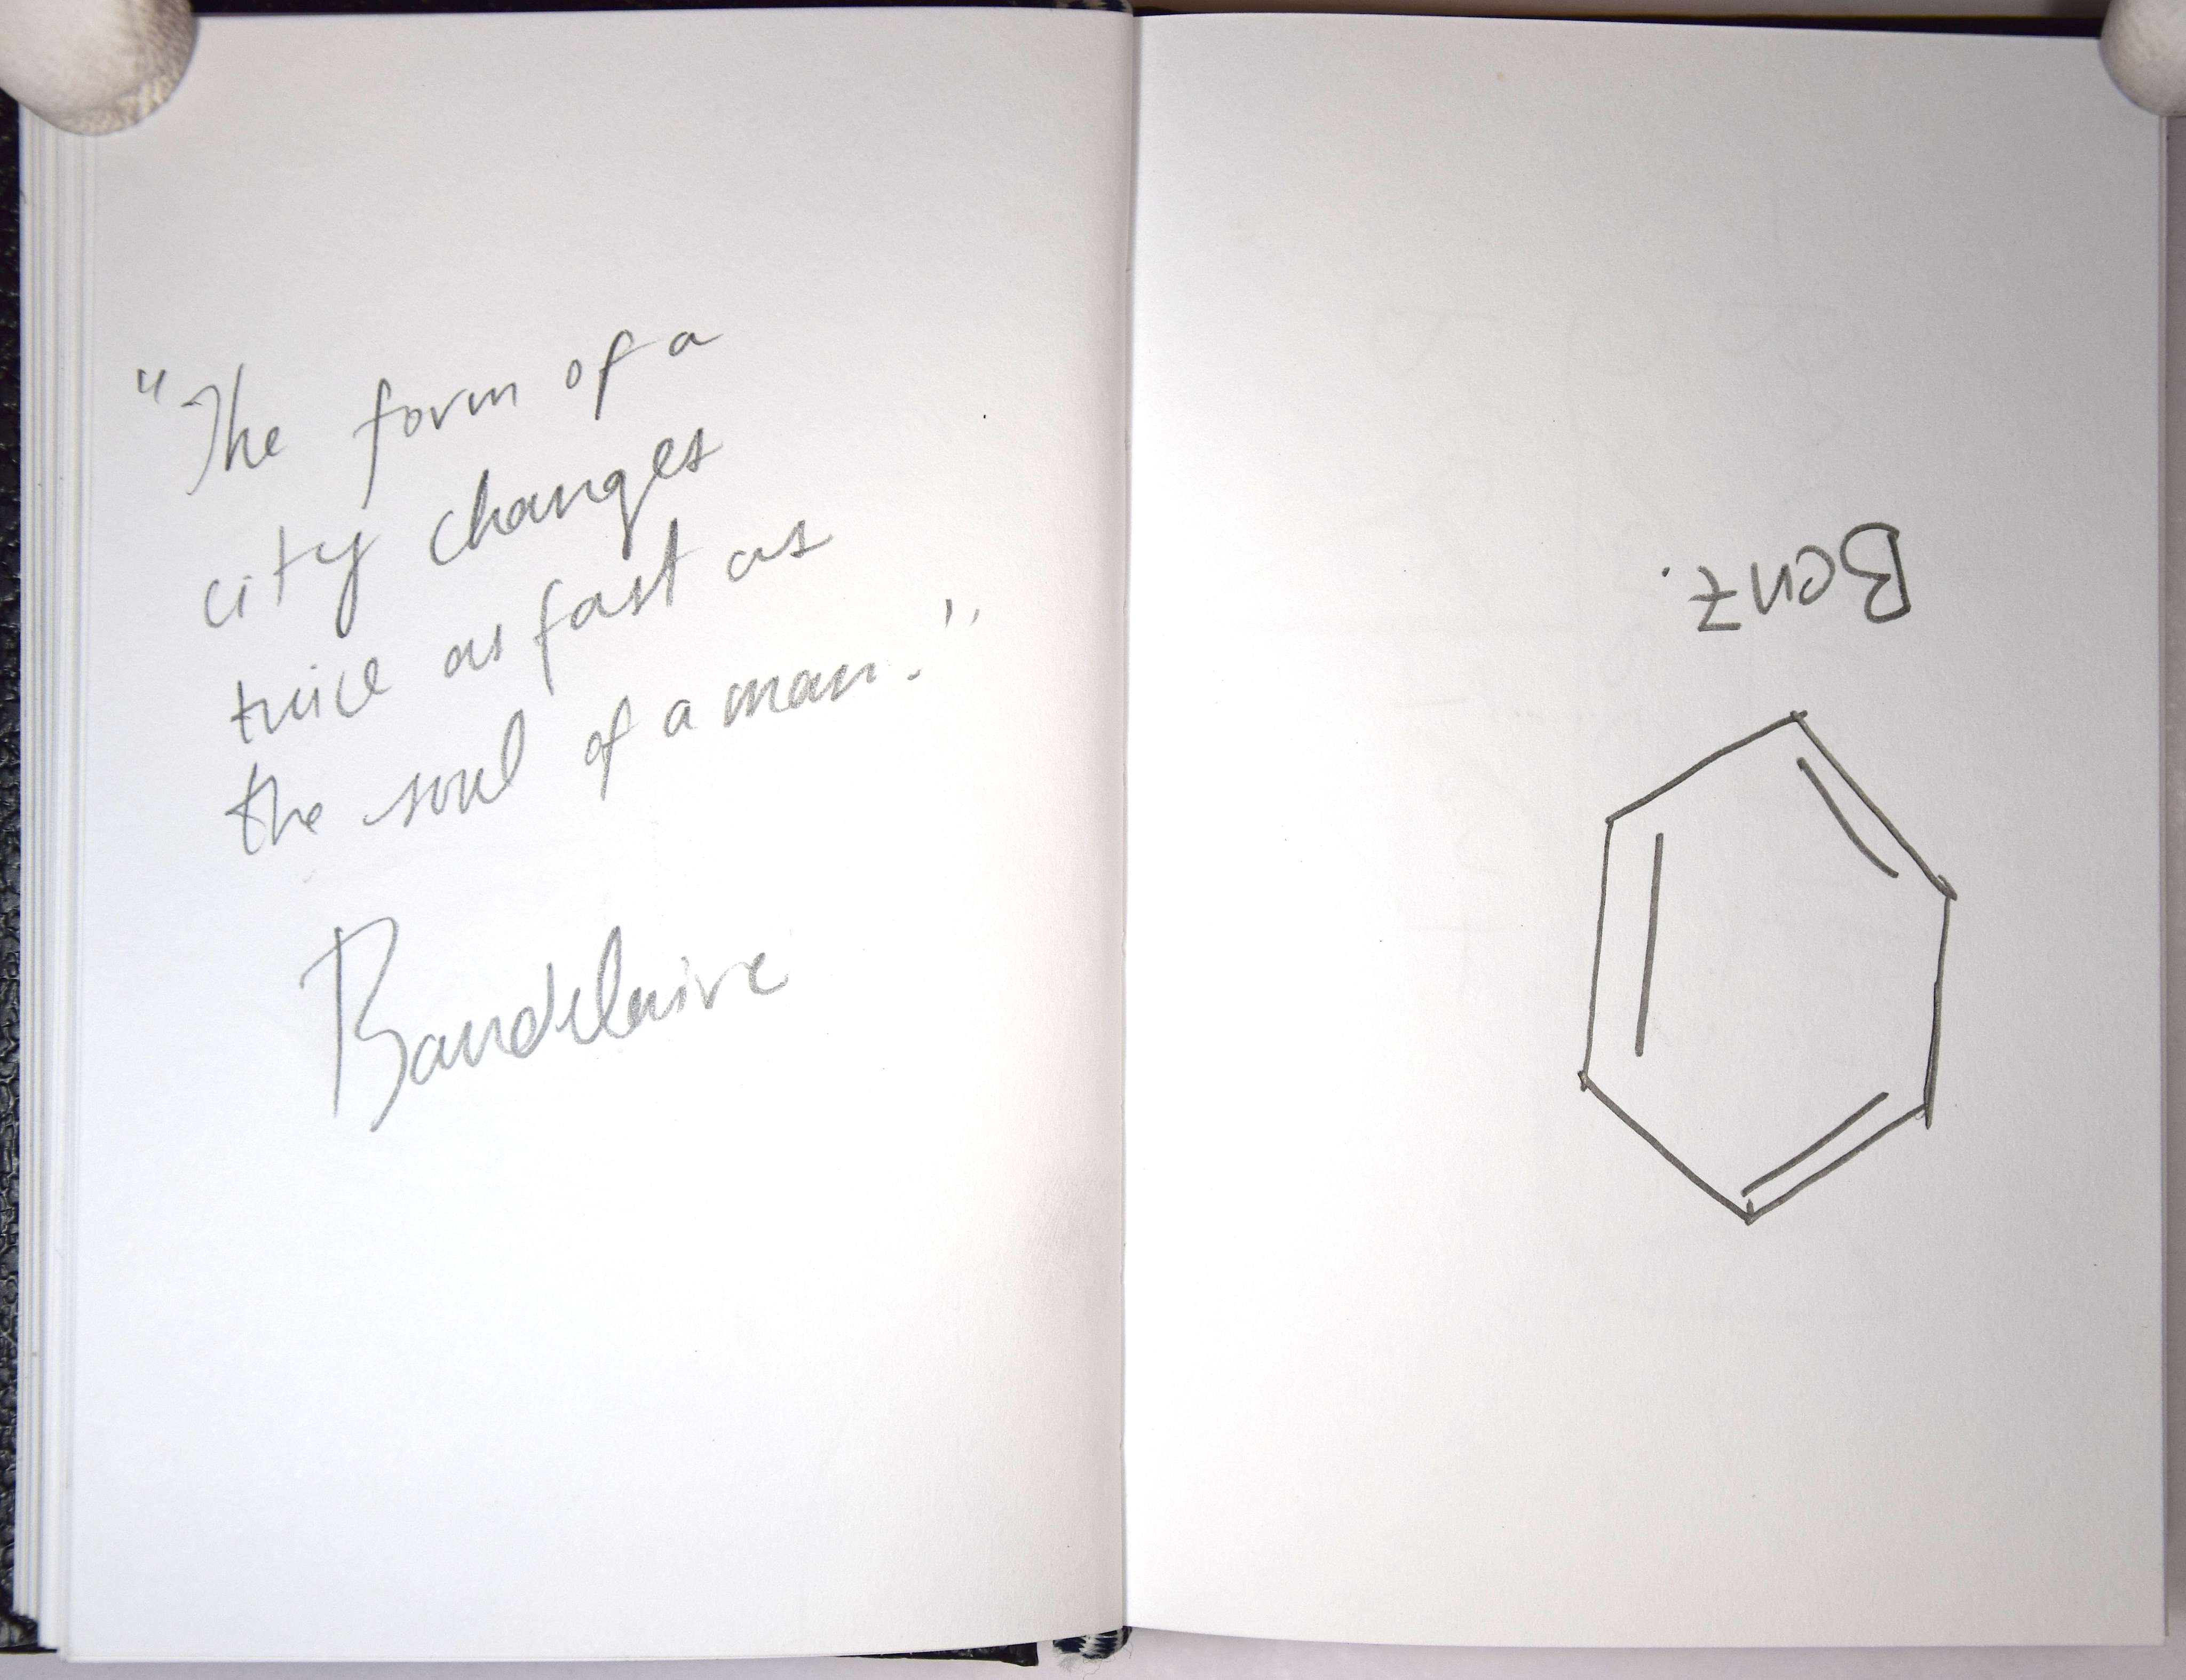 "The form of a
city changes
twice as fast as
the soul of a man."
Baudelaire
Benz.